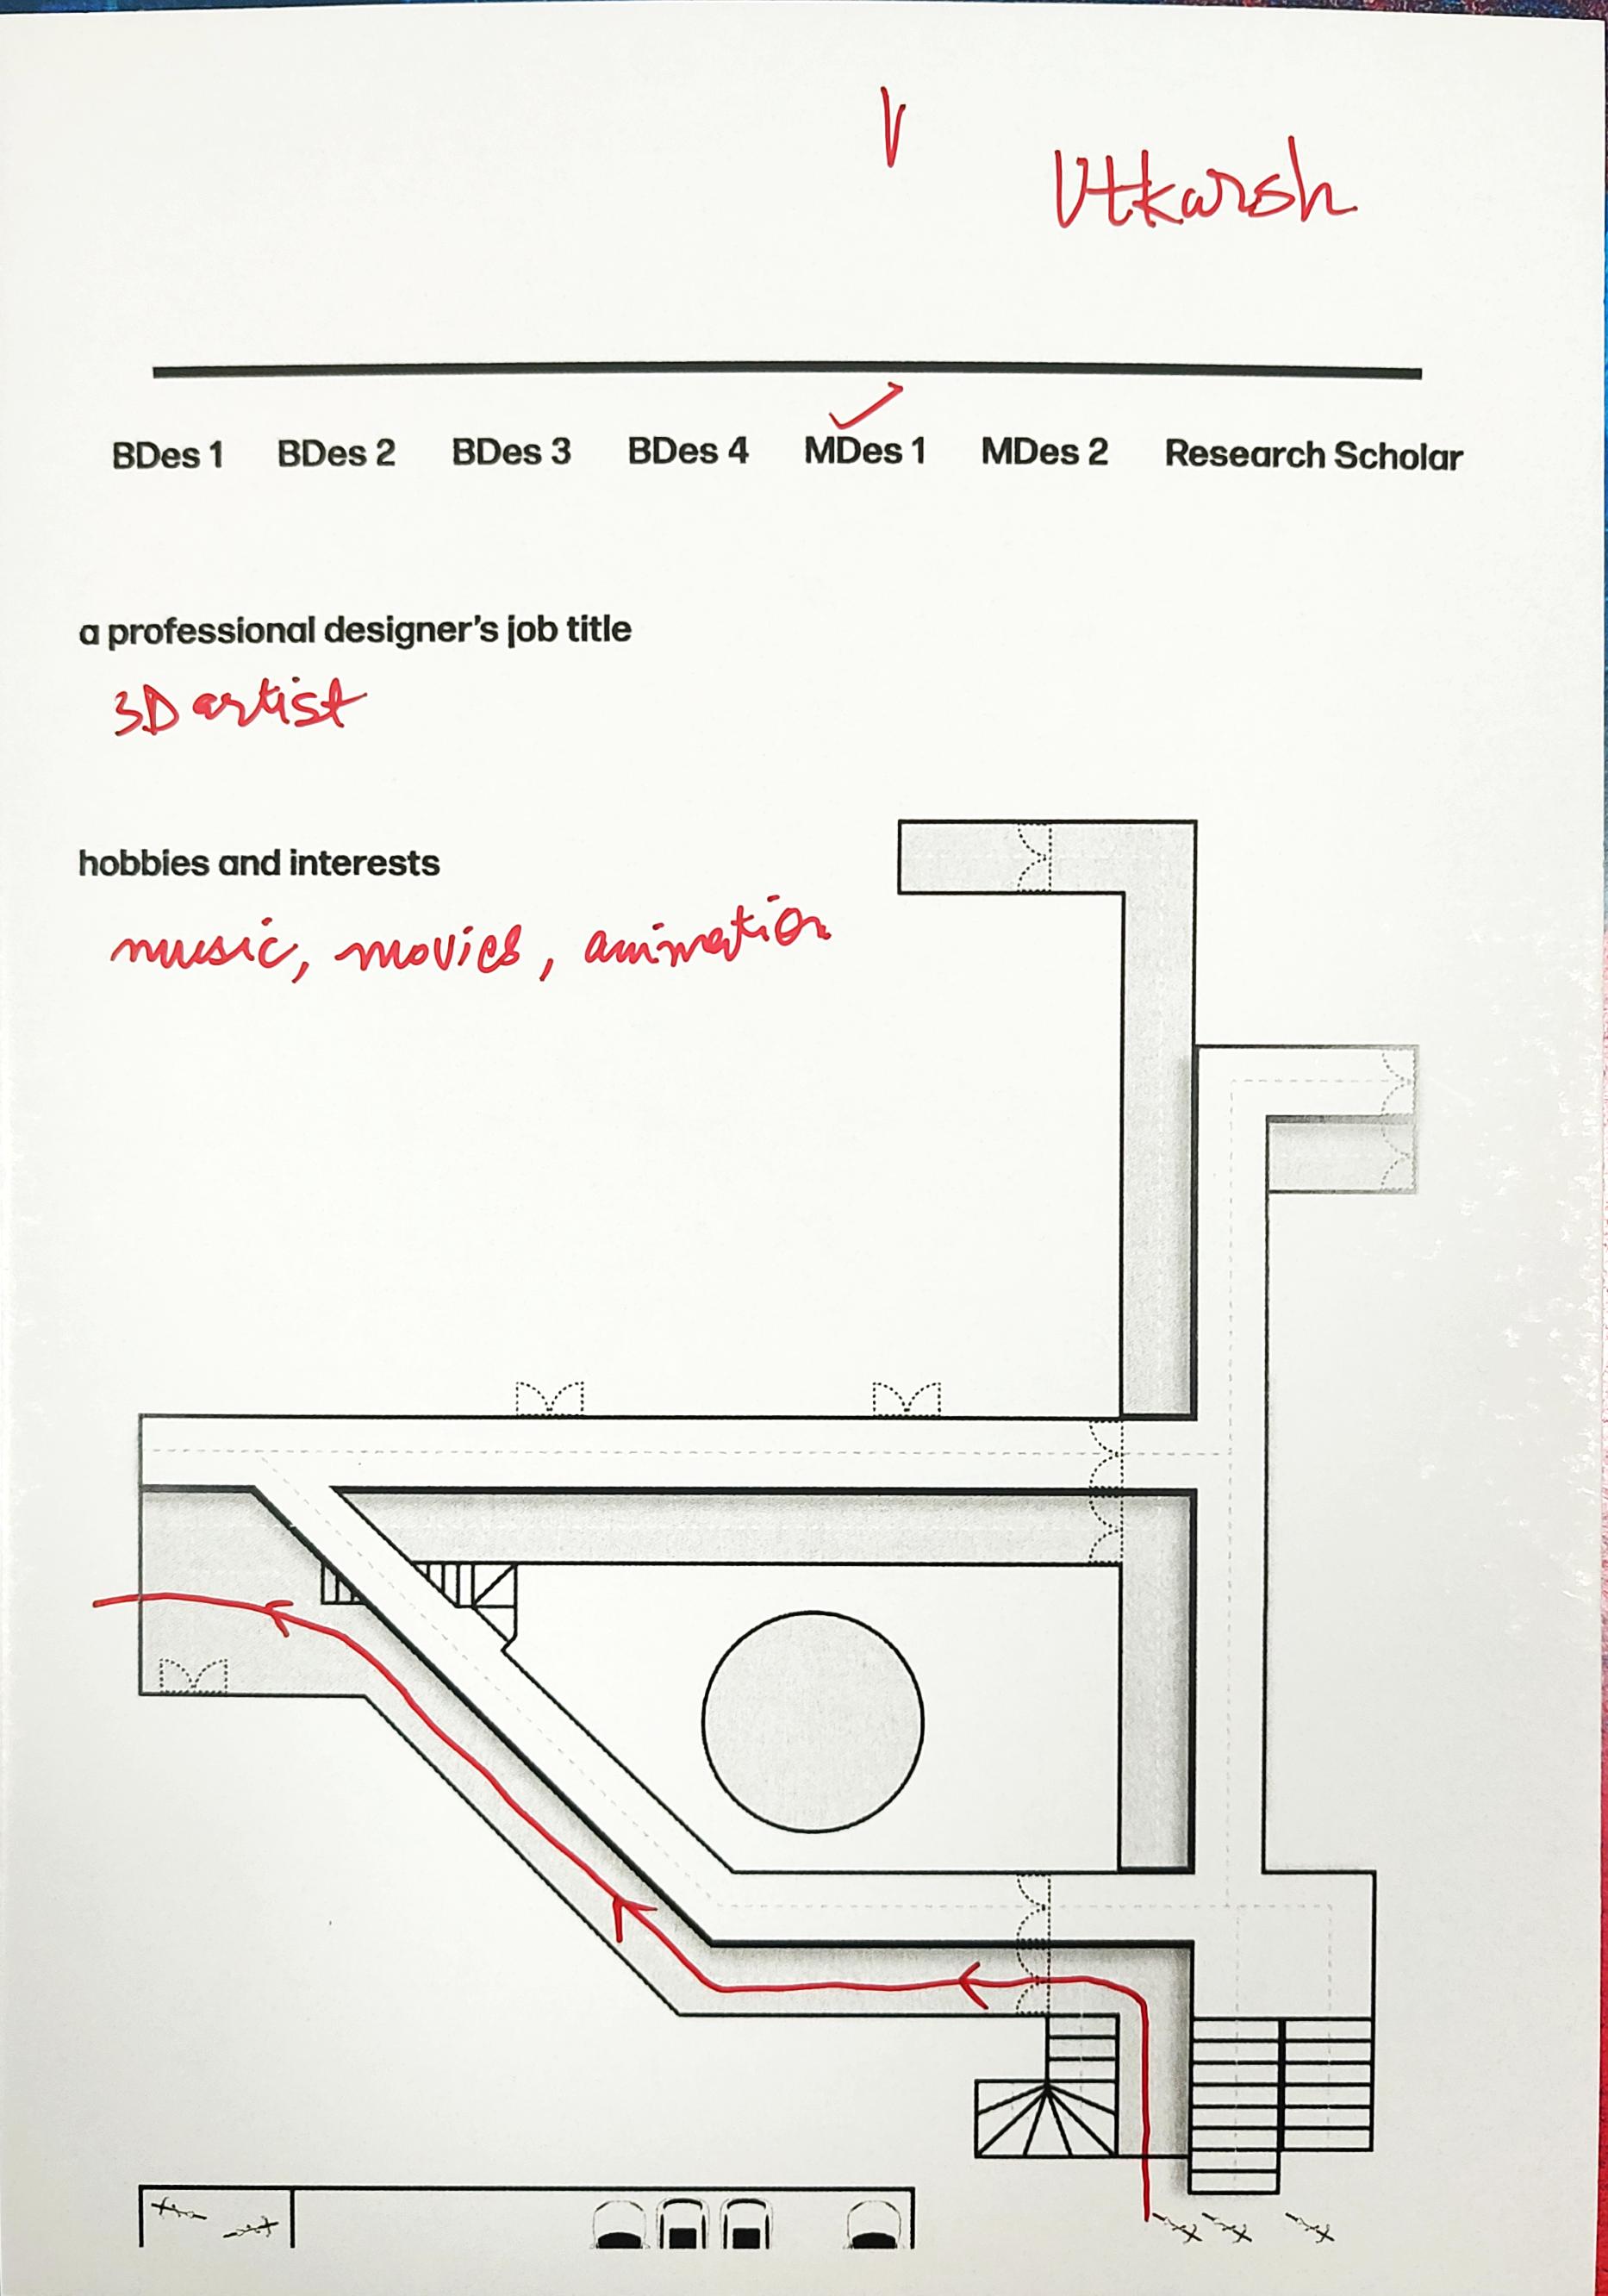 Utkarsh
BDes 1 BDes 2 BDes 3 BDes 4 MDes 1 MDes 2 Research Scholar
a professional designer's job title
3D artist
hobbies and interests
music, movies, animation